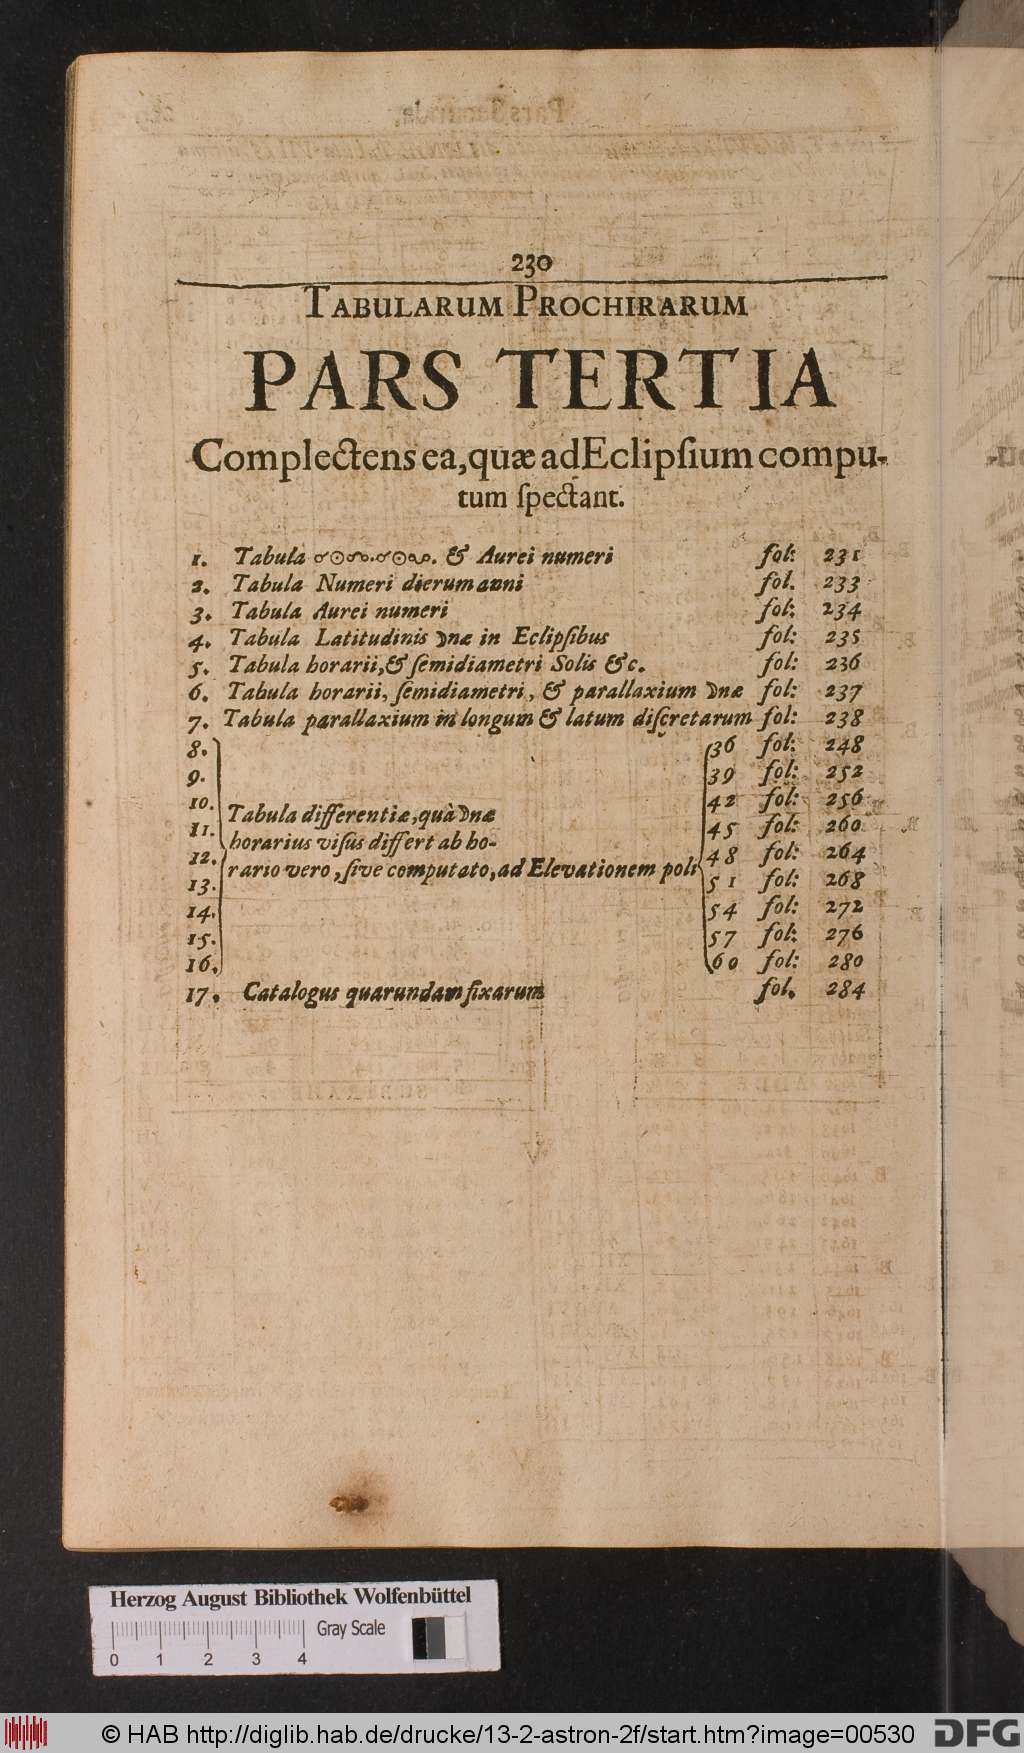 230
TABULARUM PROCHIRARUM
PARS TERTIA
Complectens ea, quæ ad Eclipſium compu-
tum ſpectant.
1. Tabula ☌☉☊.☌☉☋. & Aurei numeri fol: 231
2. Tabula Numeri dierum anni fol. 233
3. Tabula Aurei numeri fol: 234
4. Tabula Latitudinis ☽næ in Eclipſibus fol: 235
5. Tabula horarii, & ſemidiametri Solis &c. fol: 236
6. Tabula horarii, ſemidiametri, & parallaxium ☽næ fol: 237
7. Tabula parallaxium in longum & latum diſcretarum fol: 238
8. 36 fol: 248
9. 39 fol: 252
10. 42 fol: 256
Tabula differentiæ, quà ☽næ
11. 45 fol: 260
horarius viſus differt ab ho-
12. 48 fol: 264
rario vero, ſive computato, ad Elevationem poli
13. 51 fol: 268
14. 54 fol: 272
15. 57 fol: 276
16. 60 fol: 280
17. Catalogus quarundam fixarum fol. 284
Herzog August Bibliothek Wolfenbüttel
Gray Scale
0 1 2 3 4
© HAB http://diglib.hab.de/drucke/13-2-astron-2f/start.htm?image=00530
DFG